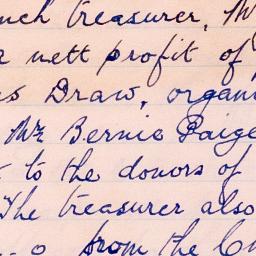 treasurer, M
a nett profit of
Draw, organi
Mr Bernie Paige
to the donors of
The treasurer also
from the